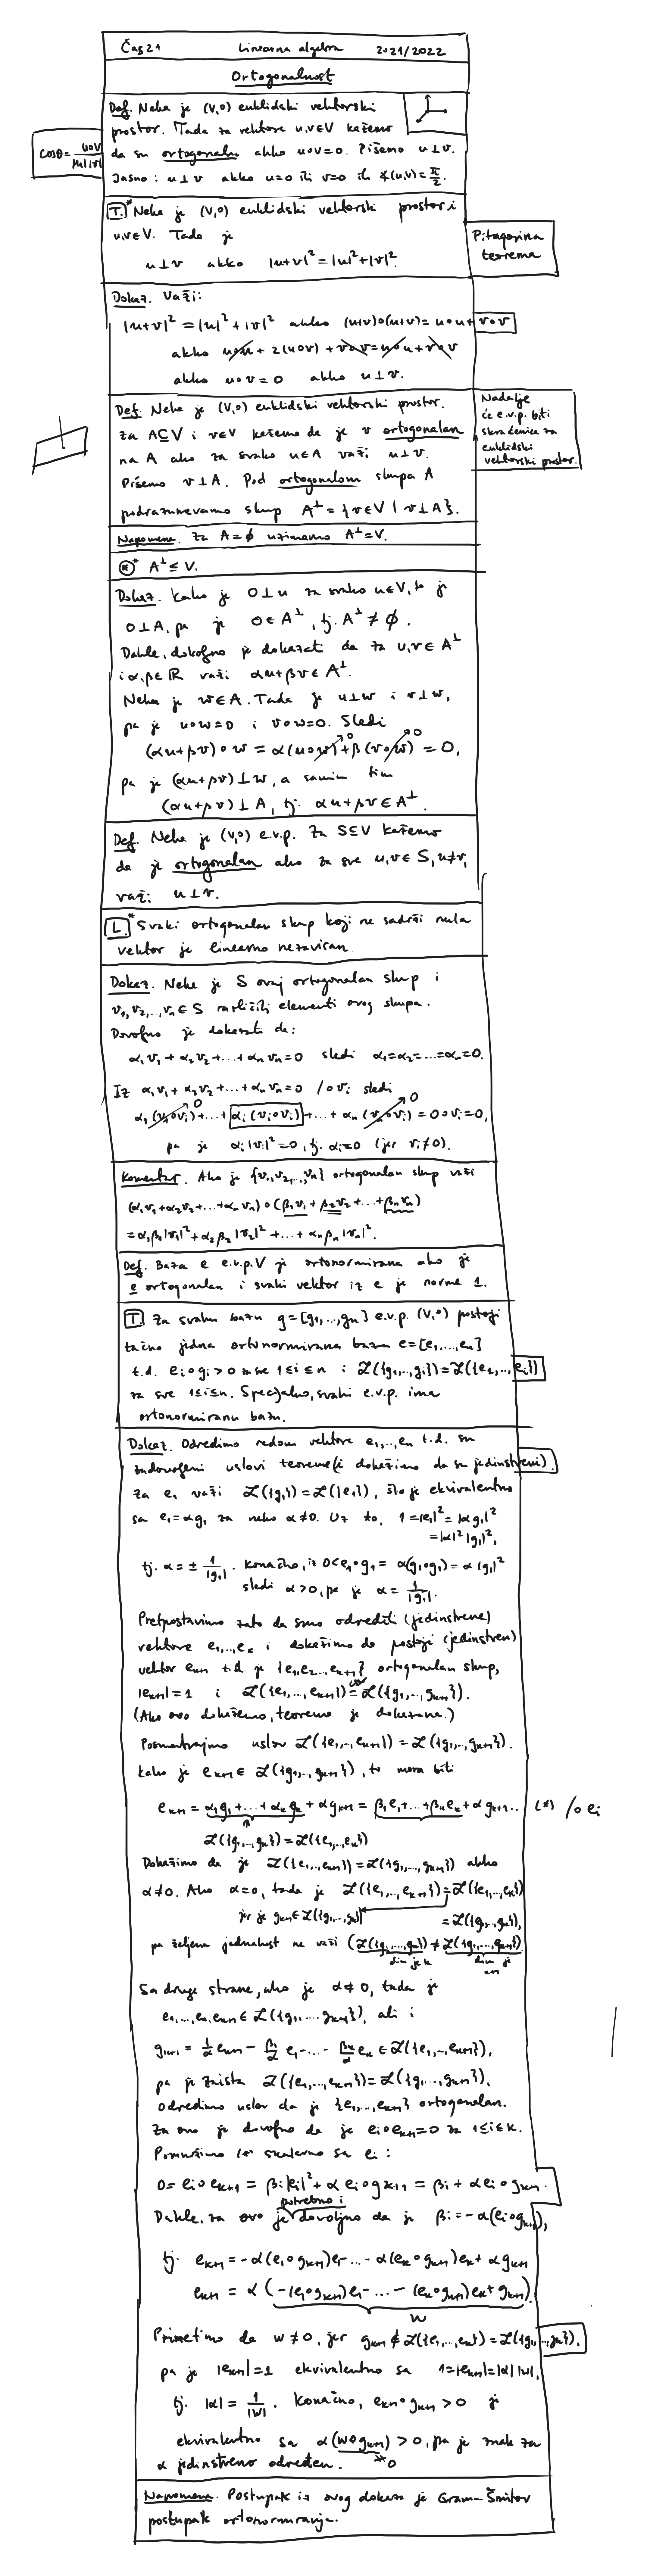 Čas 21 Linearna algebra 2021/2022
Ortogonalnost
Def. Neka je (V,∘) euklidski vektorski
prostor. Tada za vektore u,v∈V kažemo
da su ortogonalni akko u∘v=0. Pišemo u⊥v.
Jasno: u⊥v akko u=0 ili v=0 ili ∡(u,v)=π/2.
cosθ = u∘v/|u||v|
T.* Neka je (V,∘) euklidski vektorski prostor i
u,v∈V. Tada je
u⊥v akko |u+v|²=|u|²+|v|².
Pitagorina
teorema
Dokaz. Važi:
|u+v|²=|u|²+|v|² akko (u+v)∘(u+v)=u∘u+v∘v
akko u∘u+2(u∘v)+v∘v=u∘u+v∘v
akko u∘v=0 akko u⊥v.
Def. Neka je (V,∘) euklidski vektorski prostor.
Za A⊆V i v∈V kažemo da je v ortogonalan
na A ako za svako u∈A važi u⊥v.
Pišemo v⊥A. Pod ortogonalom skupa A
podrazumevamo skup A^⊥={v∈V | v⊥A}.
Nadalje
će e.v.p. biti
skraćenica za
euklidski
vektorski prostor.
Napomena. Za A=∅ uzimamo A^⊥=V.
⊛* A^⊥≤V.
Dokaz. Kako je 0⊥u za svako u∈V, to je
0⊥A, pa je 0∈A^⊥, tj. A^⊥≠∅.
Dakle, dovoljno je dokazati da za u,v∈A^⊥
i α,β∈ℝ važi αu+βv∈A^⊥.
Neka je w∈A. Tada je u⊥w i v⊥w,
pa je u∘w=0 i v∘w=0. Sledi
(αu+βv)∘w=α(u∘w)⁰+β(v∘w)⁰=0,
pa je (αu+βv)⊥w, a samim tim
(αu+βv)⊥A, tj. αu+βv∈A^⊥.
Def. Neka je (V,∘) e.v.p. Za S⊆V kažemo
da je ortogonalan ako za sve u,v∈S, u≠v,
važi: u⊥v.
L.* Svaki ortogonalan skup koji ne sadrži nula
vektor je linearno nezavisan.
Dokaz. Neka je S ovaj ortogonalan skup i
v₁,v₂,...,vₙ∈S različiti elementi ovog skupa.
Dovoljno je dokazati da:
α₁v₁+α₂v₂+...+αₙvₙ=0 sledi α₁=α₂=...=αₙ=0.
Iz α₁v₁+α₂v₂+...+αₙvₙ=0 /∘vᵢ sledi
α₁(v₁∘vᵢ)⁰+...+αᵢ(vᵢ∘vᵢ)+...+αₙ(vₙ∘vᵢ)⁰=0∘vᵢ=0,
pa je αᵢ|vᵢ|²=0, tj. αᵢ=0 (jer vᵢ≠0).
Komentar. Ako je {v₁,v₂,...,vₙ} ortogonalan skup važi
(α₁v₁+α₂v₂+...+αₙvₙ)∘(β₁v₁+β₂v₂+...+βₙvₙ)
=α₁β₁|v₁|²+α₂β₂|v₂|²+...+αₙβₙ|vₙ|².
Def. Baza e e.v.p. V je ortonormirana ako je
e ortogonalan i svaki vektor iz e je norme 1.
T. Za svaku bazu g=[g₁,...,gₙ] e.v.p. (V,∘) postoji
tačno jedna ortonormirana baza e=[e₁,...,eₙ]
t.d. eᵢ∘gᵢ>0 za sve 1≤i≤n i ℒ({g₁,...,gᵢ})=ℒ({e₁,...,eᵢ})
za sve 1≤i≤n. Specijalno, svaki e.v.p. ima
ortonormiranu bazu.
Dokaz. Odredimo redom vektore e₁,...,eₙ t.d. su
zadovoljeni uslovi teoreme (i dokažimo da su jedinstveni).
Za e₁ važi ℒ({g₁})=ℒ({e₁}), što je ekvivalentno
sa e₁=αg₁ za neko α≠0. Uz to, 1=|e₁|²=|αg₁|²
=|α|²|g₁|²,
tj. α=±1/|g₁|. Konačno, iz 0<e₁∘g₁=α(g₁∘g₁)=α|g₁|²
sledi α>0, pa je α=1/|g₁|.
Pretpostavimo zato da smo odredili (jedinstvene)
vektore e₁,...,eₖ i dokažimo da postoji (jedinstven)
vektor eₖ₊₁ t.d. je {e₁,e₂...,eₖ₊₁} ortogonalan skup,
|eₖ₊₁|=1 i ℒ({e₁,...,eₖ₊₁})=ℒ({g₁,...,gₖ₊₁}).
(Ako ovo dokažemo, teorema je dokazana.)
Posmatrajmo uslov ℒ({e₁,...,eₖ₊₁})=ℒ({g₁,...,gₖ₊₁}).
Kako je eₖ₊₁∈ℒ({g₁,...,gₖ₊₁}), to mora biti
eₖ₊₁=α₁g₁+...+αₖgₖ+αgₖ₊₁=β₁e₁+...+βₖeₖ+αgₖ₊₁... (*) /∘eᵢ
ℒ({g₁,...,gₖ})=ℒ({e₁,...,eₖ})
Dokažimo da je ℒ({e₁,...,eₖ₊₁})=ℒ({g₁,...,gₖ₊₁}) akko
α≠0. Ako α=0, tada je ℒ({e₁,...,eₖ₊₁})=ℒ({e₁,...,eₖ})
jer je gₖ₊₁∈ℒ({g₁,...,gₖ}) =ℒ({g₁,...,gₖ}),
pa željena jednakost ne važi (ℒ({g₁,...,gₖ})≠ℒ({g₁,...,gₖ₊₁})
dim je k dim je
k+1
Sa druge strane, ako je α≠0, tada je
e₁,...,eₖ,eₖ₊₁∈ℒ({g₁,...,gₖ₊₁}), ali i
gₖ₊₁=1/α eₖ₊₁-β₁/α e₁-...-βₖ/α eₖ∈ℒ({e₁,...,eₖ₊₁}),
pa je zaista ℒ({e₁,...,eₖ₊₁})=ℒ({g₁,...,gₖ₊₁}).
Odredimo uslov da je {e₁,...,eₖ₊₁} ortogonalan.
Za ovo je dovoljno da je eᵢ∘eₖ₊₁=0 za 1≤i≤k.
Pomnožimo (*) skalarno sa eᵢ:
0=eᵢ∘eₖ₊₁=βᵢ|eᵢ|²+α eᵢ∘gₖ₊₁=βᵢ+αeᵢ∘gₖ₊₁.
potrebno i
Dakle, za ovo je dovoljno da je βᵢ=-α(eᵢ∘gₖ₊₁),
tj. eₖ₊₁=-α(e₁∘gₖ₊₁)e₁-...-α(eₖ∘gₖ₊₁)eₖ+αgₖ₊₁
eₖ₊₁=α(-(e₁∘gₖ₊₁)e₁-...-(eₖ∘gₖ₊₁)eₖ+gₖ₊₁).
w
Primetimo da w≠0, jer gₖ₊₁∉ℒ({e₁,...,eₖ})=ℒ({g₁,...,gₖ}),
pa je |eₖ₊₁|=1 ekvivalentno sa 1=|eₖ₊₁|=|α||w|,
tj. |α|=1/|w|. Konačno, eₖ₊₁∘gₖ₊₁>0 je
ekvivalentno sa α(w∘gₖ₊₁)>0, pa je znak za
α jedinstveno određen. ≠0
Napomena. Postupak iz ovog dokaza je Gram-Šmitov
postupak ortonormiranja.